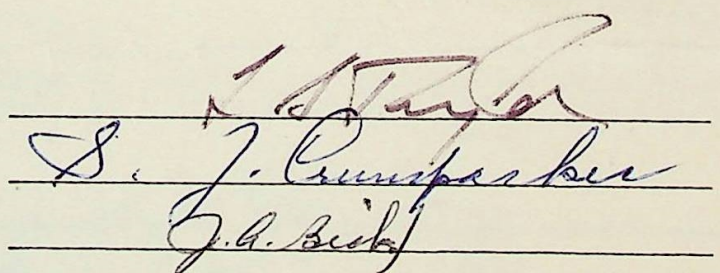 L S Taylor
S. J. Crumparker
J. A. Bick